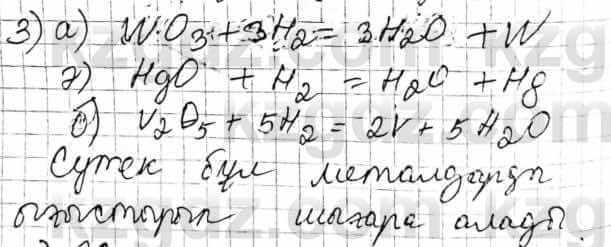 3) а) WO₃ + 3H₂ = 3H₂O + W
ә) HgO + H₂ = H₂O + Hg
б) V₂O₅ + 5H₂ = 2V + 5H₂O
Сутек бұл металдарды
ығыстырып шығара алады.